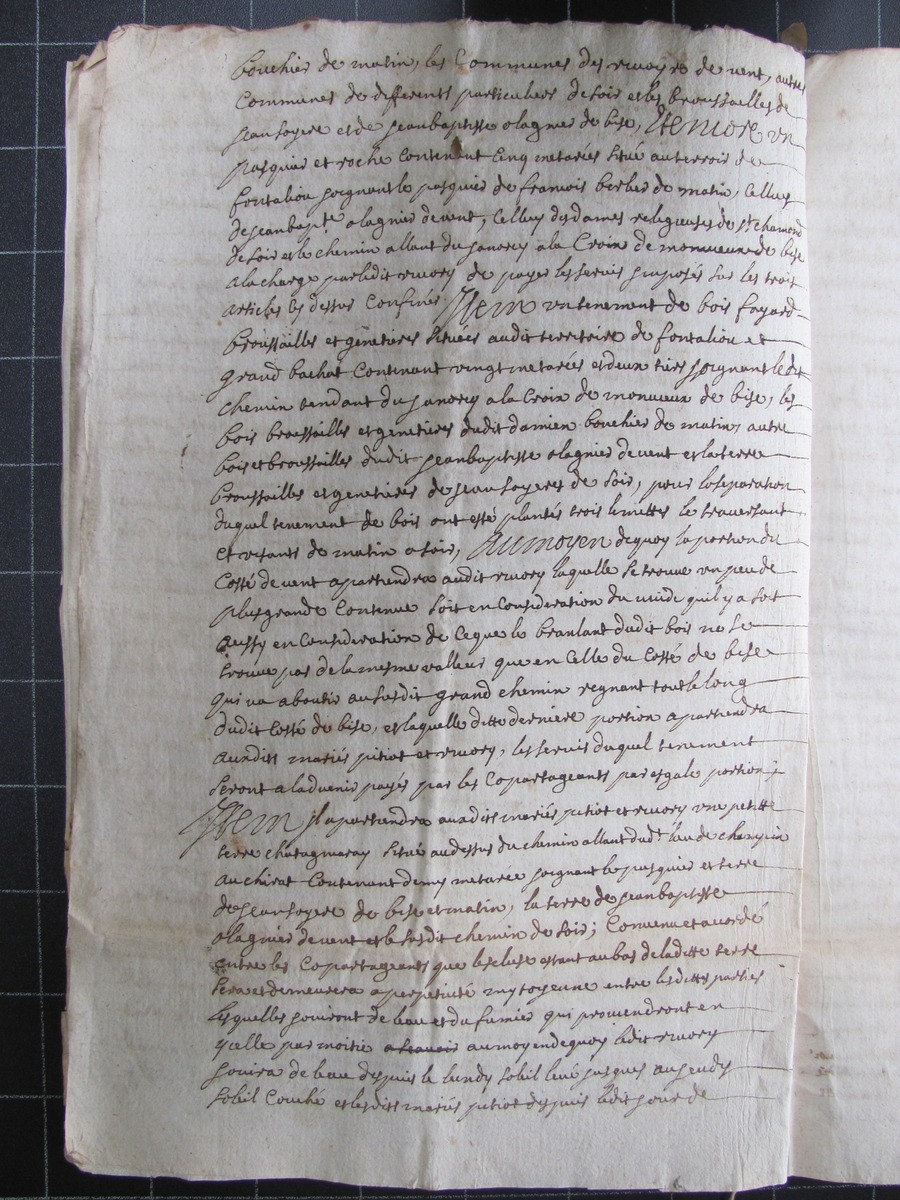 bouchier de matin, les Communes des rivoyre de vent, autres
Communes de differents particuliers de soir et les broussailles de
jean soyere et de jeanbaptiste olagnier de bise, Item ore un
pasquier et roche Contenant Cinq metarées situé au terroir de
fontaliou joignant le pasquier de francois berlier de matin, Celluy
de jeanbapt.e olagnier de vent, Celluy des dames religieuses de st chamond
de soir et le chemin allant du janorey a la Croix de monvieux de bise
a la charge par ledit rivory de payer les servis imposés sur les trois
articles cy dessus Confinés Item un tenement de bois fayard
broussailles et genetieres situées audit territoire de fontaliou et
grand bachat Contenant vingt metarées et deux tiers joignant ledit
chemin tendant du janorey a la Croix de monvieux de bise, les
bois broussailles et genetieres dudit damien bouchier de matin, autre
bois et broussailles dudit jeanbaptiste olagnier de vent et la terre
broussailles et genetieres de jean soyere de soir, pour la separation
duquel tenement de bois ont esté plantés trois limittes le traversant
et visants de matin a soir, Au moyen de quoy la portion du
Costé de vent apartiendra audit rivory laquelle se trouve un peu de
plus grande Contenue soit en Consideration du vuide quil y a soit
aussy en Consideration de Ceque le branlant dudit bois ne se
trouve pas de la mesme valleur que en Celle du Costé de bise
qui va aboutir au susdit grand chemin regnant tout le long
dudit Costé de bise, et laquelle ditte derniere portion apartiendra
auxdits mariés pitiot et rivory, les servis duquel tenement
seront a ladvenir payés par les Copartageants par esgale portion;
Item il apartiendra auxdits mariés pitiot et rivory une petitte
terre chatagnaray situé au dessus du chemin allant dud.t lieu de champin
au chirat Contenant demy metarée joignant le pasquier et terre
de jean soyere de bise et matin, la terre de jeanbaptiste
olagnier de vent et le susdit chemin de soir; Convenu et accordé
entre les Copartageants que lescluse estant au bas de laditte terre
sera et demeurera a perpetuité mytoyenne entre lesdittes parties
lesquelles jouiront de leau et du fumier qui proviendront en
ycelle par moitié a scavoir au moyen dequoy ledit rivory
jouira de leau depuis le lundy soleil levé jusques au jeudy
soleil Couché et lesdits mariés pitiot depuis ledit jour de